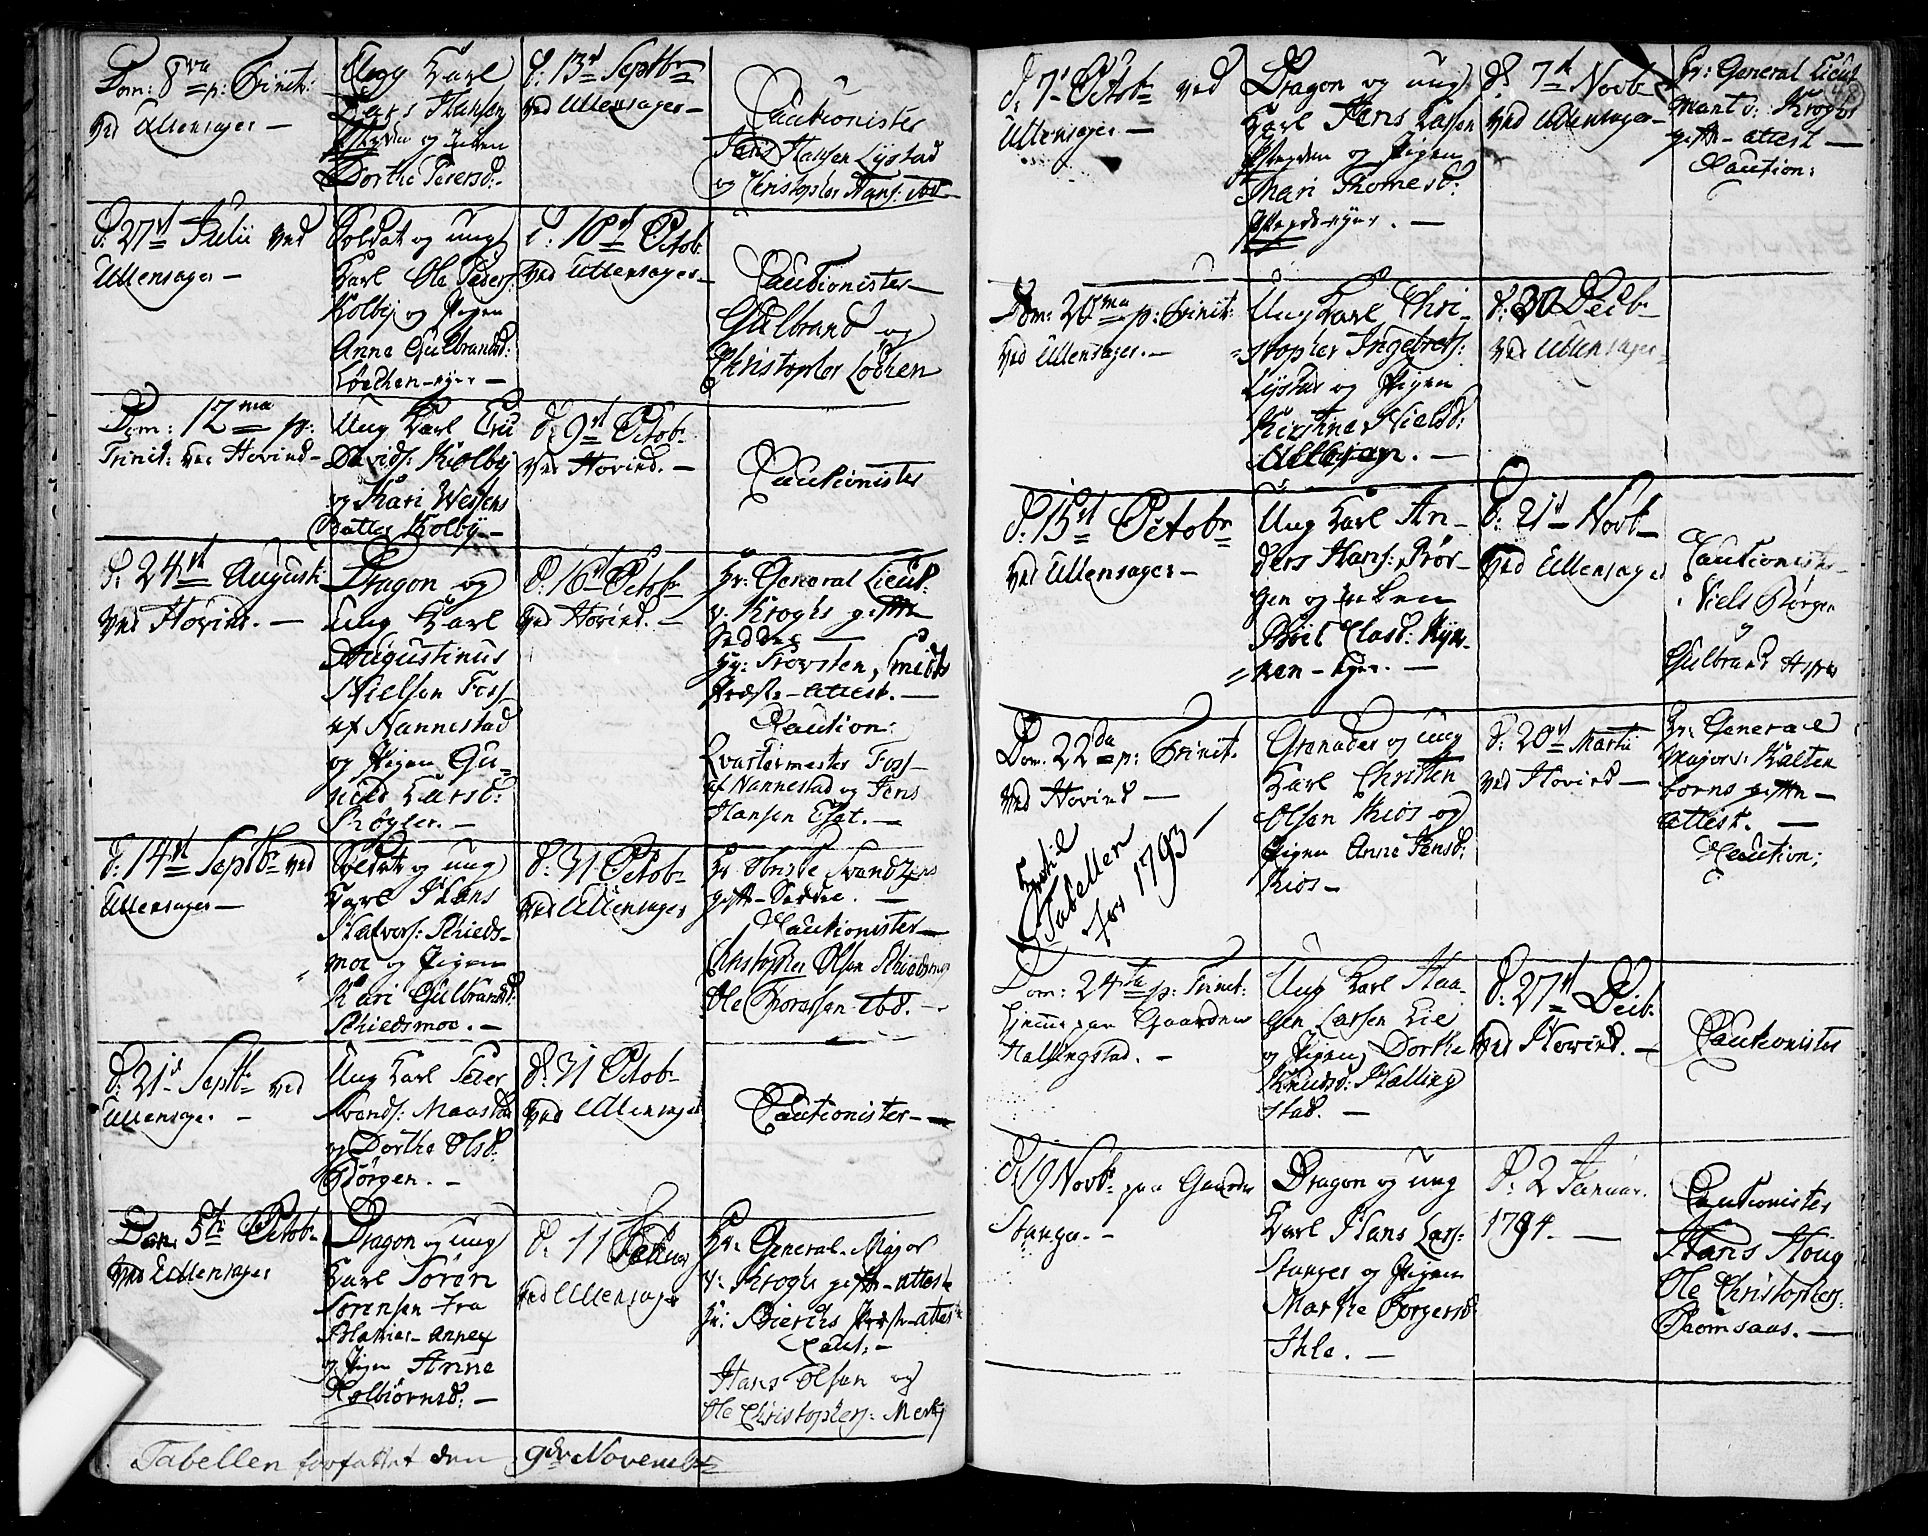 Dom: 8va p: Trinit:
ved Ullensager —
Ung Karl
Lars Hansen
og Enken
Dorthe Pedersd:
d: 13d Septbr
ved Ullensager —
Cautionister
Hans Hansen Lystad
og Christopher Hans: ibd
d: 27d Julii ved
Ullensager —
Soldat og ung
Karl Ole Peders:
Kolby og Pigen
Anne Gulbrandsd:
Løechen-eyer —
d: 10d Octob.
ved Ullensager —
Cautionister —
Gulbrand og
Christopher Löchen
Dom: 12ma p:
Trinit: ved Hovind —
Ung Karl Eri
Davids: Kolby
og Kari Wessens
Datter Kolby —
d: 9d Octob
ved Hovind. —
Cautionister
d: 24d August
ved Hovind. —
Dragon og
Ung Karl
Augustinus
Nielsen Foss
af Nannestad
og Pigen Gu-
nild Larsd:
Røgler. —
d: 16d Octob
ved Hovind. —
Hr: General Lieut.
v: Kroghs gifte
Hr: Provsten Smidts
Præste-attest. —
Caution:
Qvartermester Foss
af Nannestad og Jens
Hansen —
d: 14d Septbr ved
Ullensager —
Soldat og ung
Karl Hans
Halvors: Schieds-
moe og Pigen
Kari Gulbrandsd:
Schiedsmoe. —
d: 31 Octob
ved Ullensager
gifte-Seddel. —
Cautionister —
Christopher Olsen Schiedsmoe
Ole Thorassen ibd. —
d: 21d Septbr ved
Ullensager —
Ung Karl Peder
Svends: Maastad
og Dorthe Olsd:
Børgen. —
d: 31 Octob
ved Ullensager
Cautionister —
5te Octob
ved Ullensager
Dragon og ung
Karl Sören
Sorensen fra
Blakier-Annex
og Pigen Anne
Kolbiørnsd: —
d: 11
ved Ullensager
Hr: General-Major
v: Kroghs gifte-attest
Hr: Præste-attest
Caut: —
Hans Olsen og
Ole Christophers:
Tabellen forfattet den 9de November
d: 7d Octob ved
Ullensager —
Dragon og ung
Karl Jens Lassen
og Pigen
Mari Thomesd:
—
d: 7d Novb
ved Ullensager —
Hr: General Lieut
mant v: Kroghs
gifte-attest —
Caution:
Dom: 20ma p: Trinit:
ved Ullensager. —
Ung Karl Chri-
stopher Ingebrets:
Lystad og Pigen
Kirstine Nielsd:
d: 30 Decb
ved Ullensager
d: 15d Octobr
ved Ullensager —
Ung Karl An-
ders Hans: Bör-
gen og Enken
Clasd: Kyn-
nen-eyer. —
d: 21d Novb
ved Ullensager
Cautionister
Niels Børgen
og
Gulbrand
Dom: 22da p: Trinit.
ved Hovind —
Grenader og ung
Karl Christen
Olsen Kios og
Pigen Anne Jensd:
Kios —
d: 20d Martii
ved Hovind —
Hr: General
Majors: Kalten
borns gifte-
attest. —
Caution:
Hertil
Tabellen
for 1793 —
Dom: 24ta p: Trinit:
hjemme paa Gaarden
Hallingstad. —
Ung Karl Haa-
gen Larsen Lie
og Pigen Dorthe
Knudsd: Halling
stad. —
d: 27d Decb.
ved Hovind. —
Cautionister
d: 19 Novb paa Gaarden
Stanger —
Dragon og ung
Karl Hans Lars:
Stanger og Pigen
Marthe Torgersd
Ihle. —
d: 2 Januar.
1794. —
Cautionister
Hans Houg
Ole Christophers:
Thomsaas. —